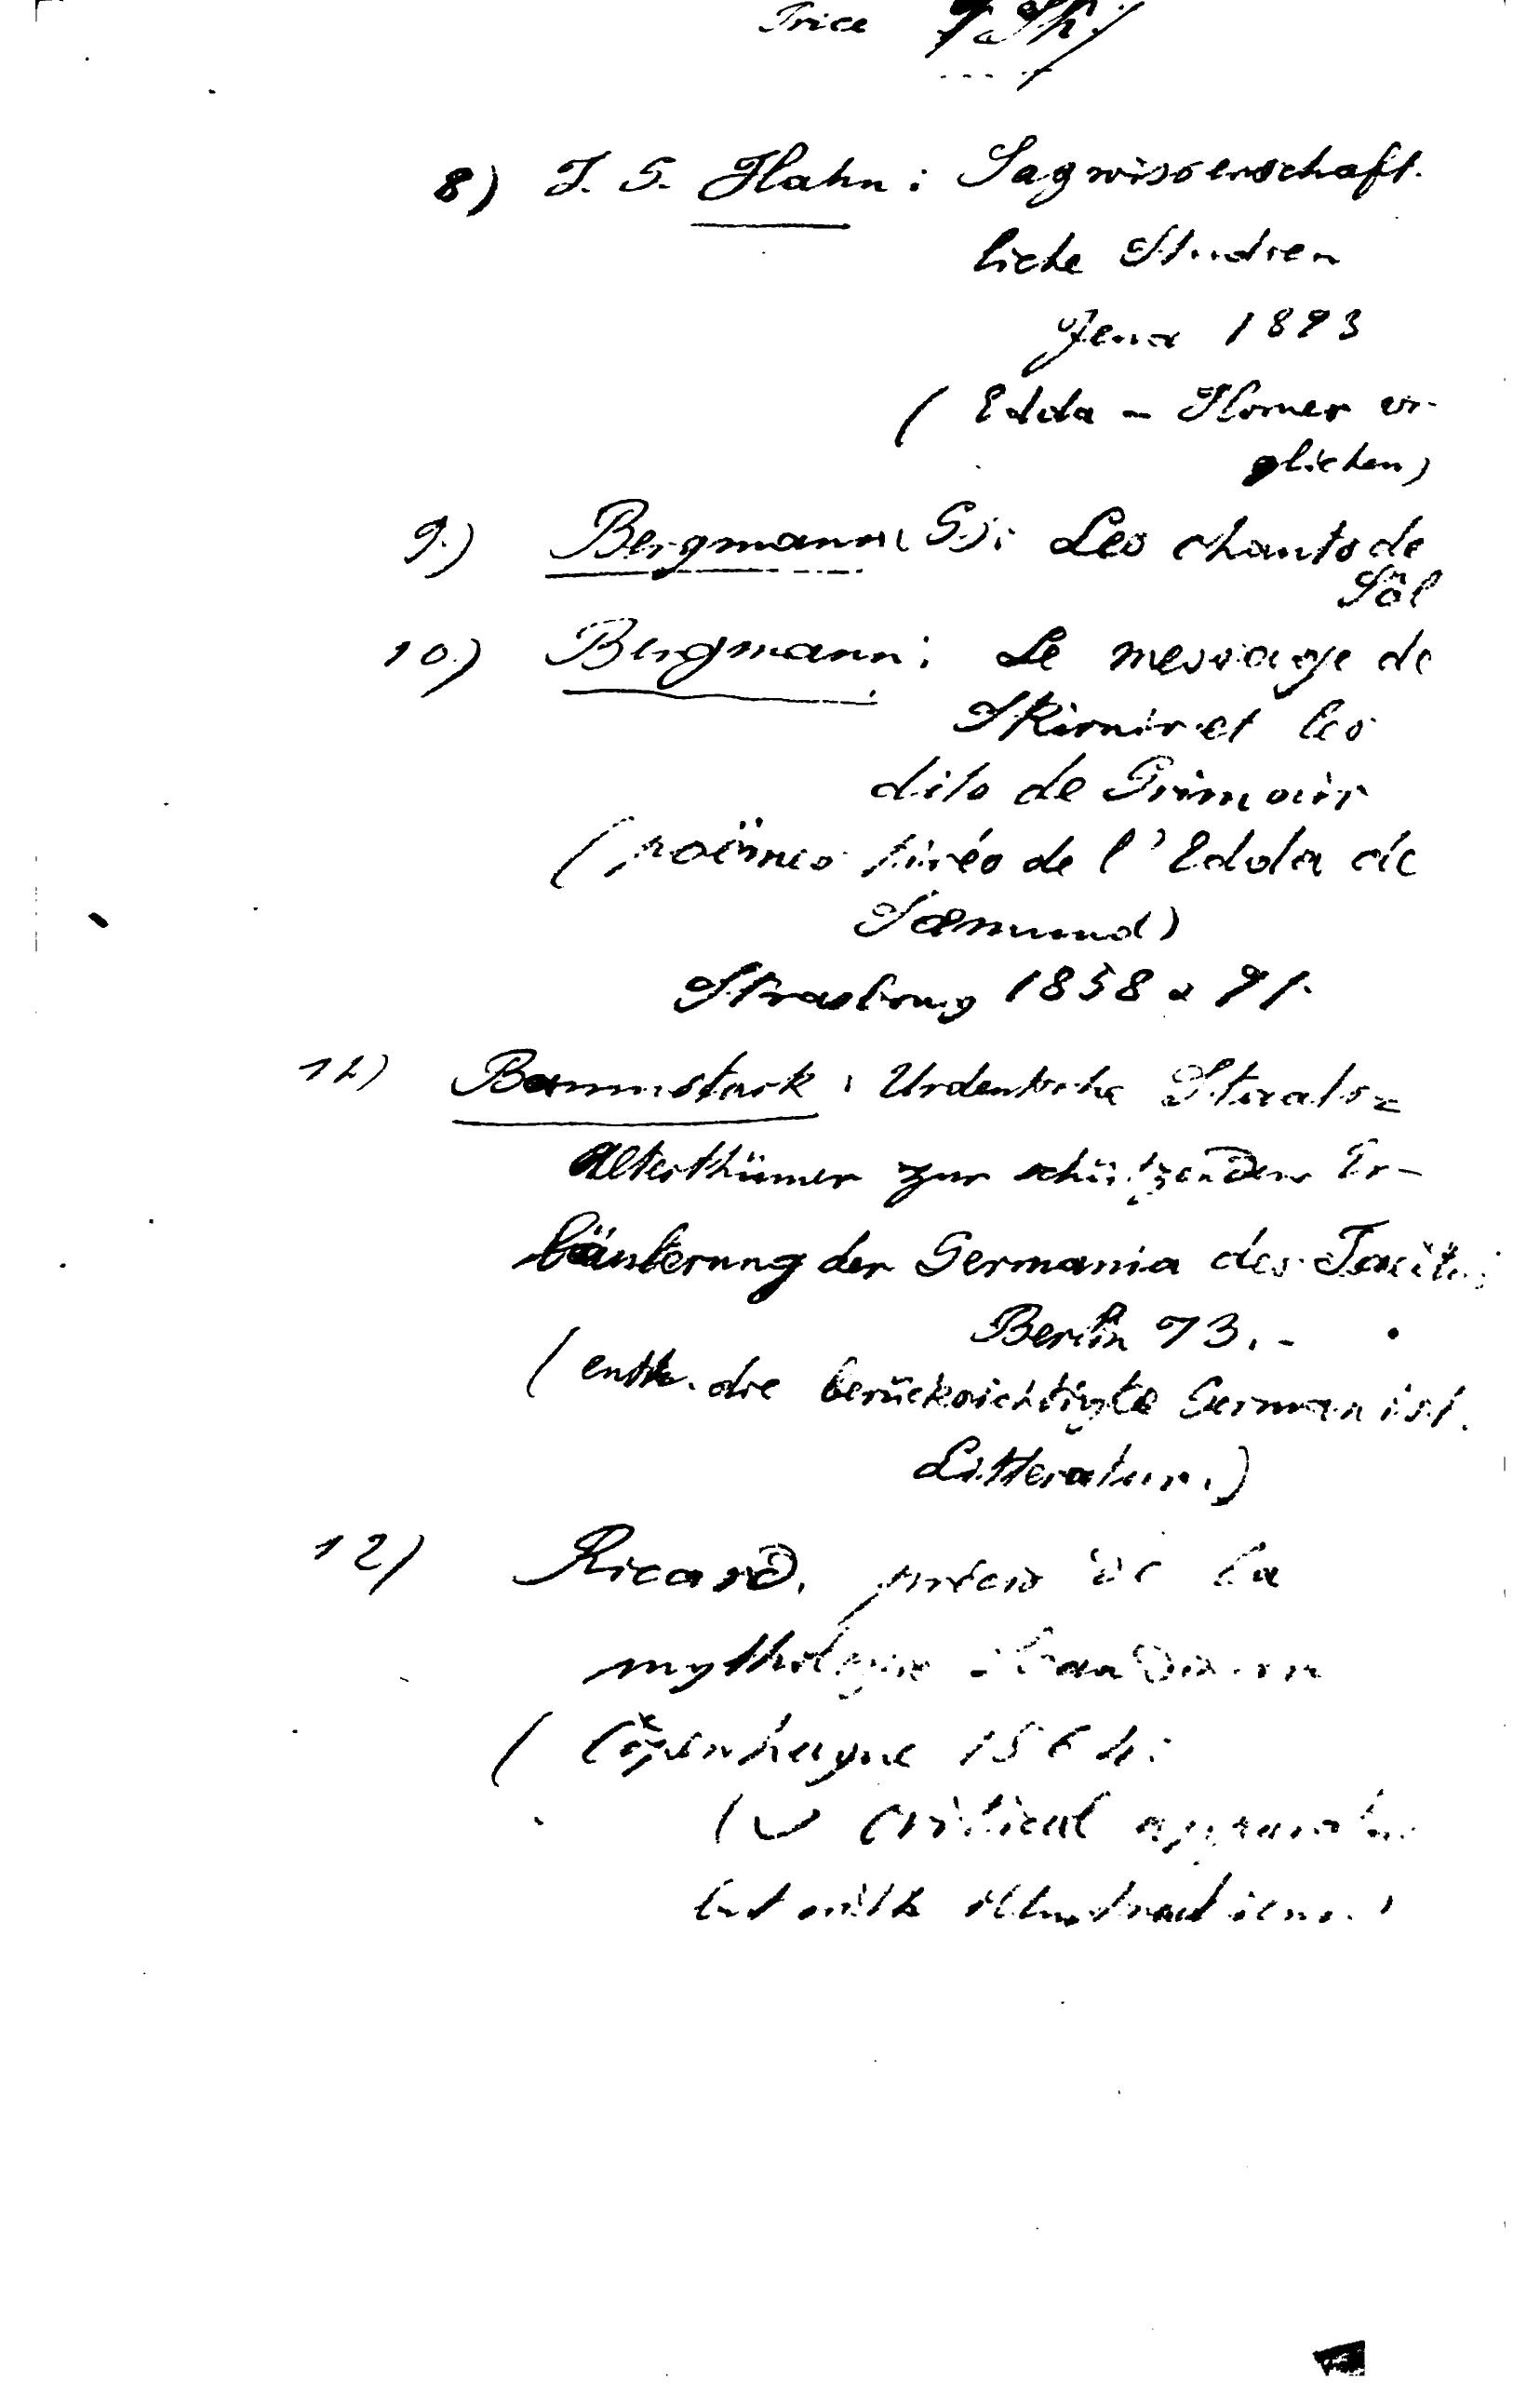 Price
8) J. G. Hahn: Sagwissenschaft.
liche Studien
Jena 1873
( Edda – Homer ver-
glichen)
9.) Bergmann (G.): Les chants de
Sôl
10.) Bergmann: Le message de
Skirnir et les
dits de Grimnir
(poëmes tirés de l'Edda de
Sæmund)
Strasbourg 1858 & 71.
11) Baumstark: Urdeutsche Staats=
alterthümer zur schützenden Er-
läuterung der Germania des Tacitus
Berlin 73.-
(enth. die berücksichtigte Germanist.
Litteratur.)
12) Ricard, précis de la
mythologie
( Copenhague
critical
but with illustrations.)